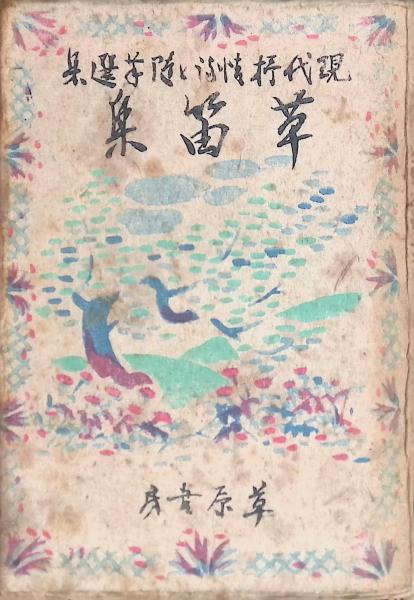 現代抒情詩と随筆選集
草笛集
草原書房